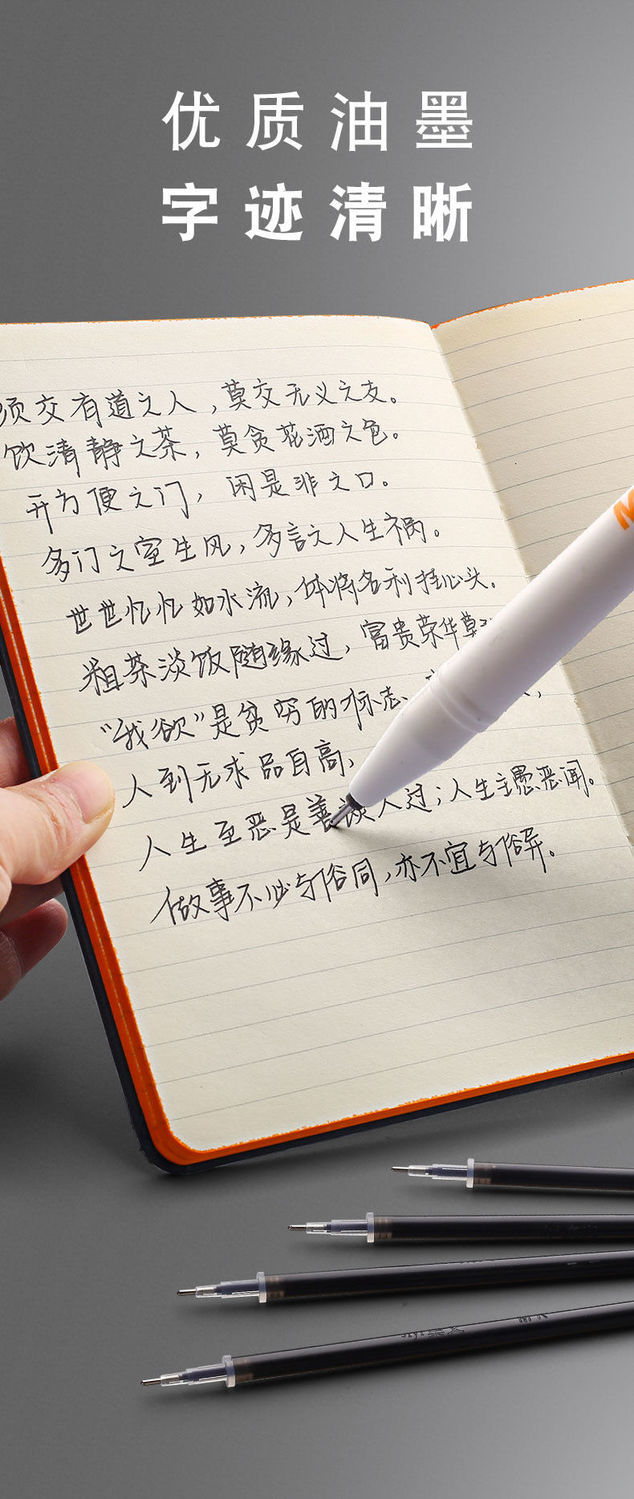 优质油墨
字迹清晰
须交有道之人，莫交无义之友。
饮清静之茶，莫贪花酒之色。
开方便之门，闲是非之口。
多门之室生风，多言之人生祸。
世世忙忙如水流，休将名利挂心头。
粗茶淡饭随缘过，富贵荣华莫
“我欲”是贫穷的标志、
人到无求品自高，
人生至恶是善谈人过；人生主愚恶闻。
做事不必与俗同，亦不宜与俗异。